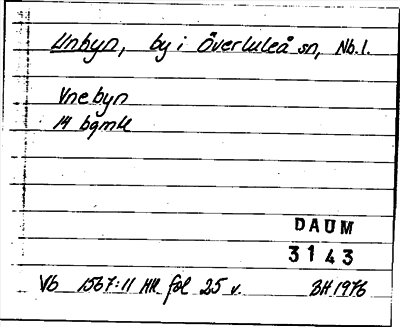 Unbyn, by i Överluleå sn, Nb.l.
Vnebyn
14 bgmk
DAUM
3143
Vb 1567:11 HR fol 25 v. BH 1976